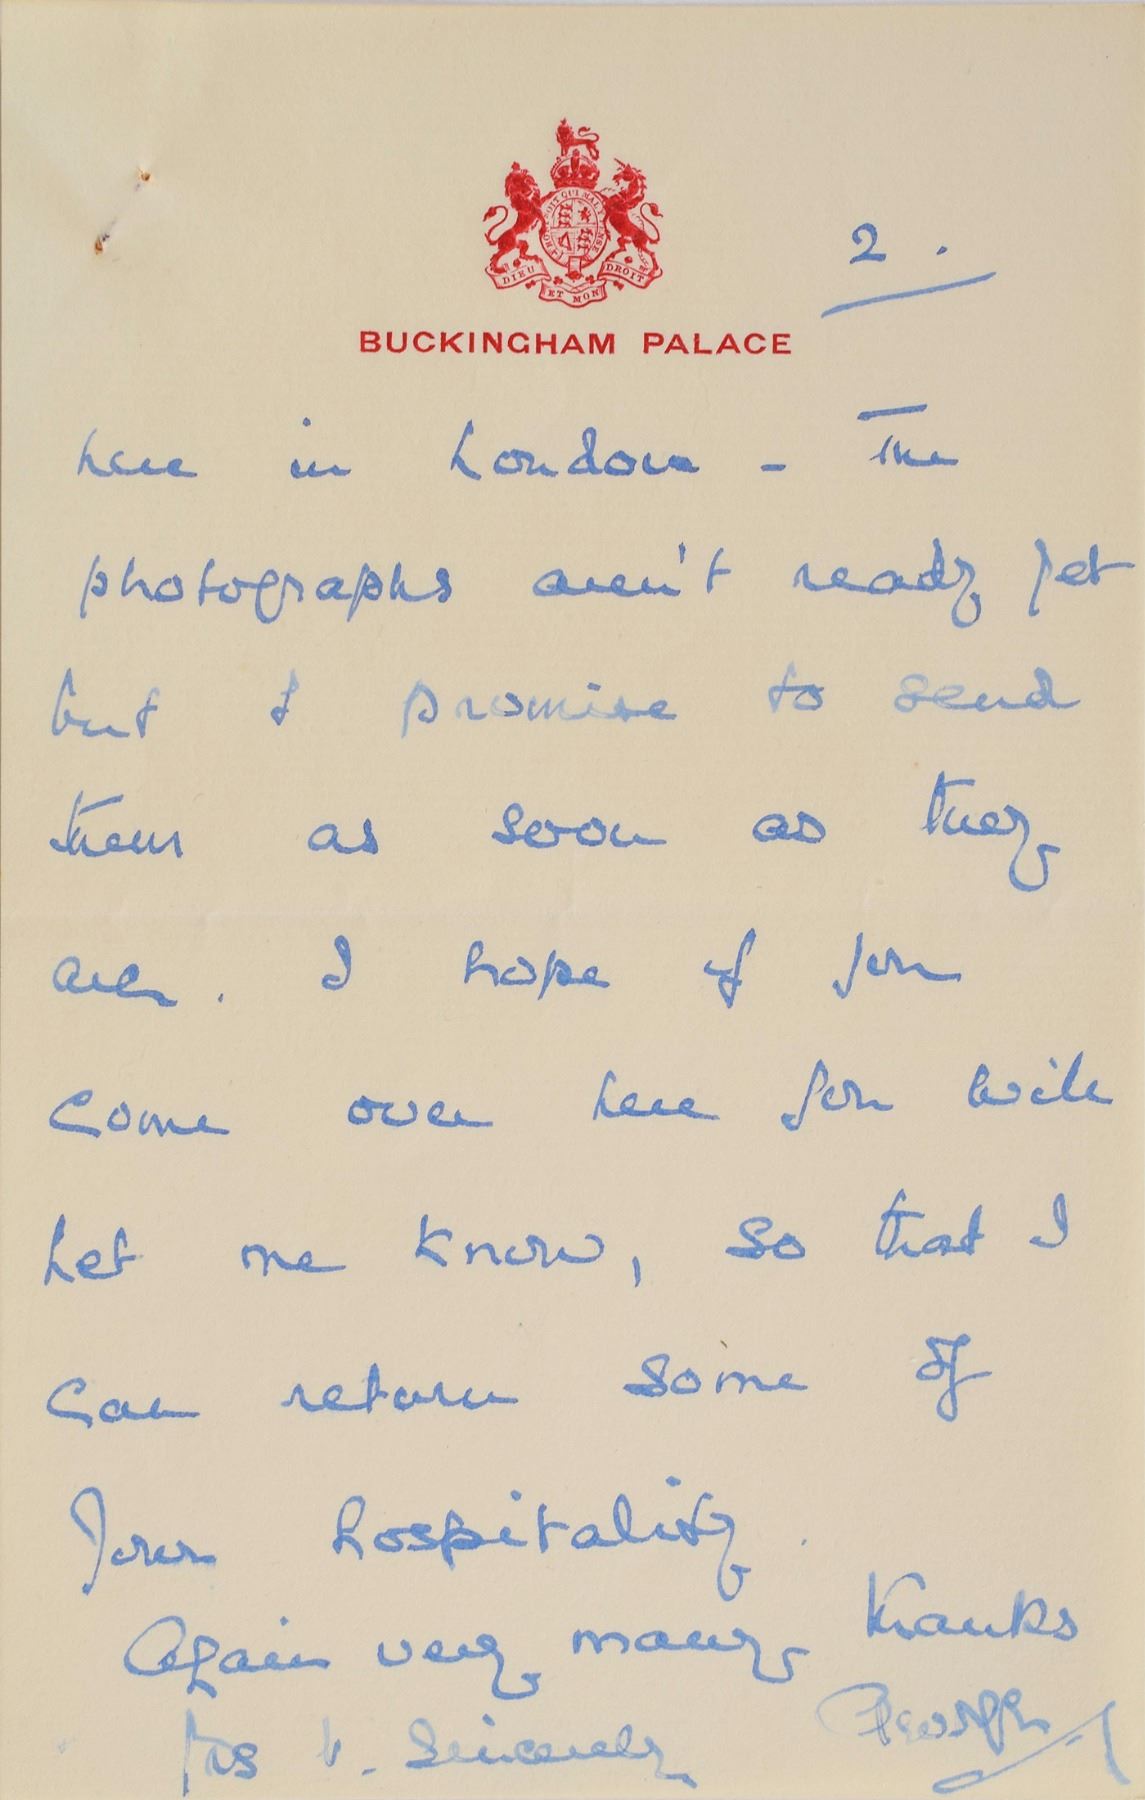 HONI SOIT QUI MAL Y PENSE
DIEU ET MON DROIT
2.
BUCKINGHAM PALACE
here in London - The
photographs aren't ready yet
but I promise to send
them as soon as they
are. I hope if you
come over here you will
let me know, so that I
can return some of
your hospitality.
Again very many thanks
Yrs v. sincerely
George